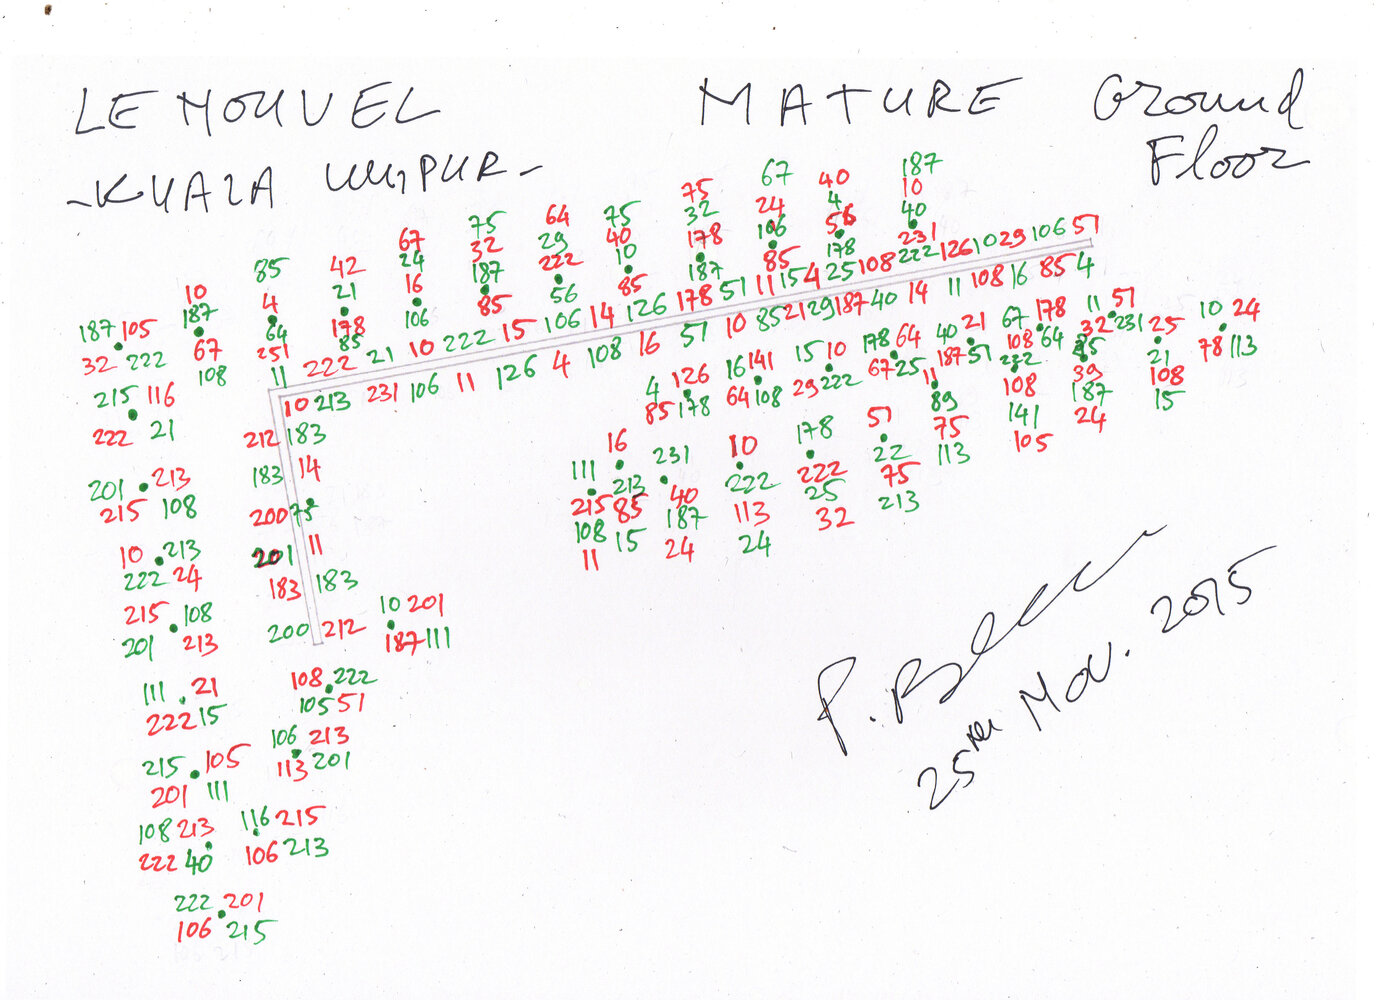 LE NOUVEL
MATURE Ground
Floor
-KUALA LUMPUR-
187
67 40 10
75 24 4 40
75 64 75 32 106 56 231
67 32 29 40 178 85 178 222 126 10 29 106 51
85 42 24 187 222 10 187 51 11 15 4 25 108
10 4 21 16 85 56 85 126 178
187 64 178 106 222 15 106 14
187 105 67 251 85 21 10
32 222 108 11 222
10 85 21 29 187 40 14 11 108 16 85 4
10 213 231 106 11 126 4 108 16 51
215 116
222 21
212 183
183 14
200 75
201 11
183 183
200 212
201 213
215 108
10 213
222 24
215 108
201 213
111 21
222 15
215 105
201 111
108 213
222 40
222 201
106 215
10 201
187 111
108 222
105 51
106 213
113 201
116 215
106 213
4 126
85 178
16 141
64 108
15 10
29 222
178 64
67 25
40 21
187 51
11
89
75
113
67 178
108 64
222
108
141
105
11 51
32 231
85
39
187
24
25
21
108
15
10 24
78 113
111
215
108
11
16
213
85
15
231
40
187
24
10
222
113
24
178
222
25
32
51
22
75
213
25th Nov. 2015